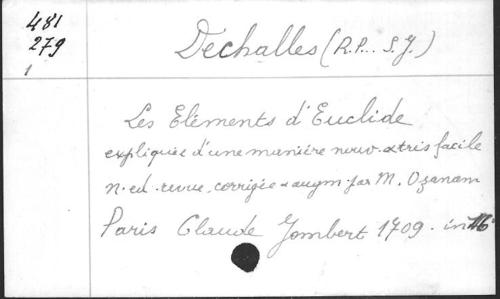 481
279
1
Dechalles (R.P.. S.J.)
Les Eléments d'Euclide
expliqués d'une manière nouv. & tris facile
n. ed. revue, corrigée & augm. par M. Ozanam
Paris Claude Jombert 1709. in 16°